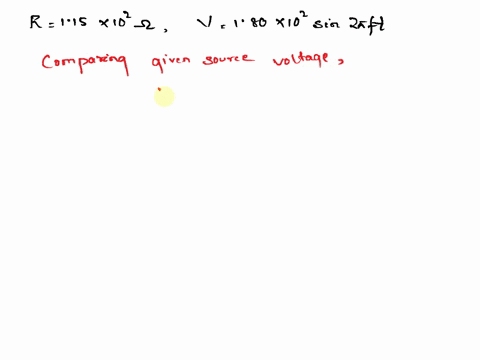 R = 1.15 × 10² Ω, V = 1.80 × 10² sin 2πft
Comparing given source voltage,